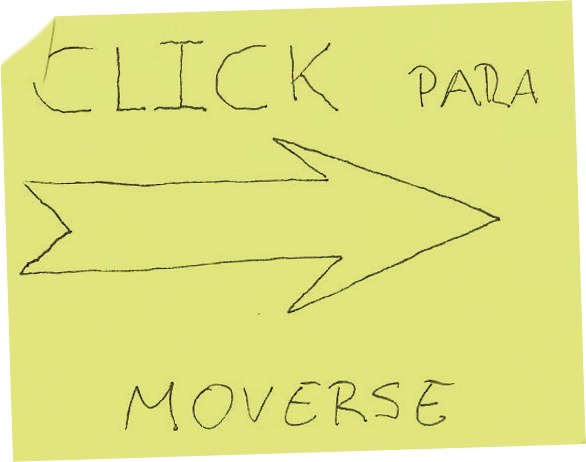 CLICK PARA
MOVERSE